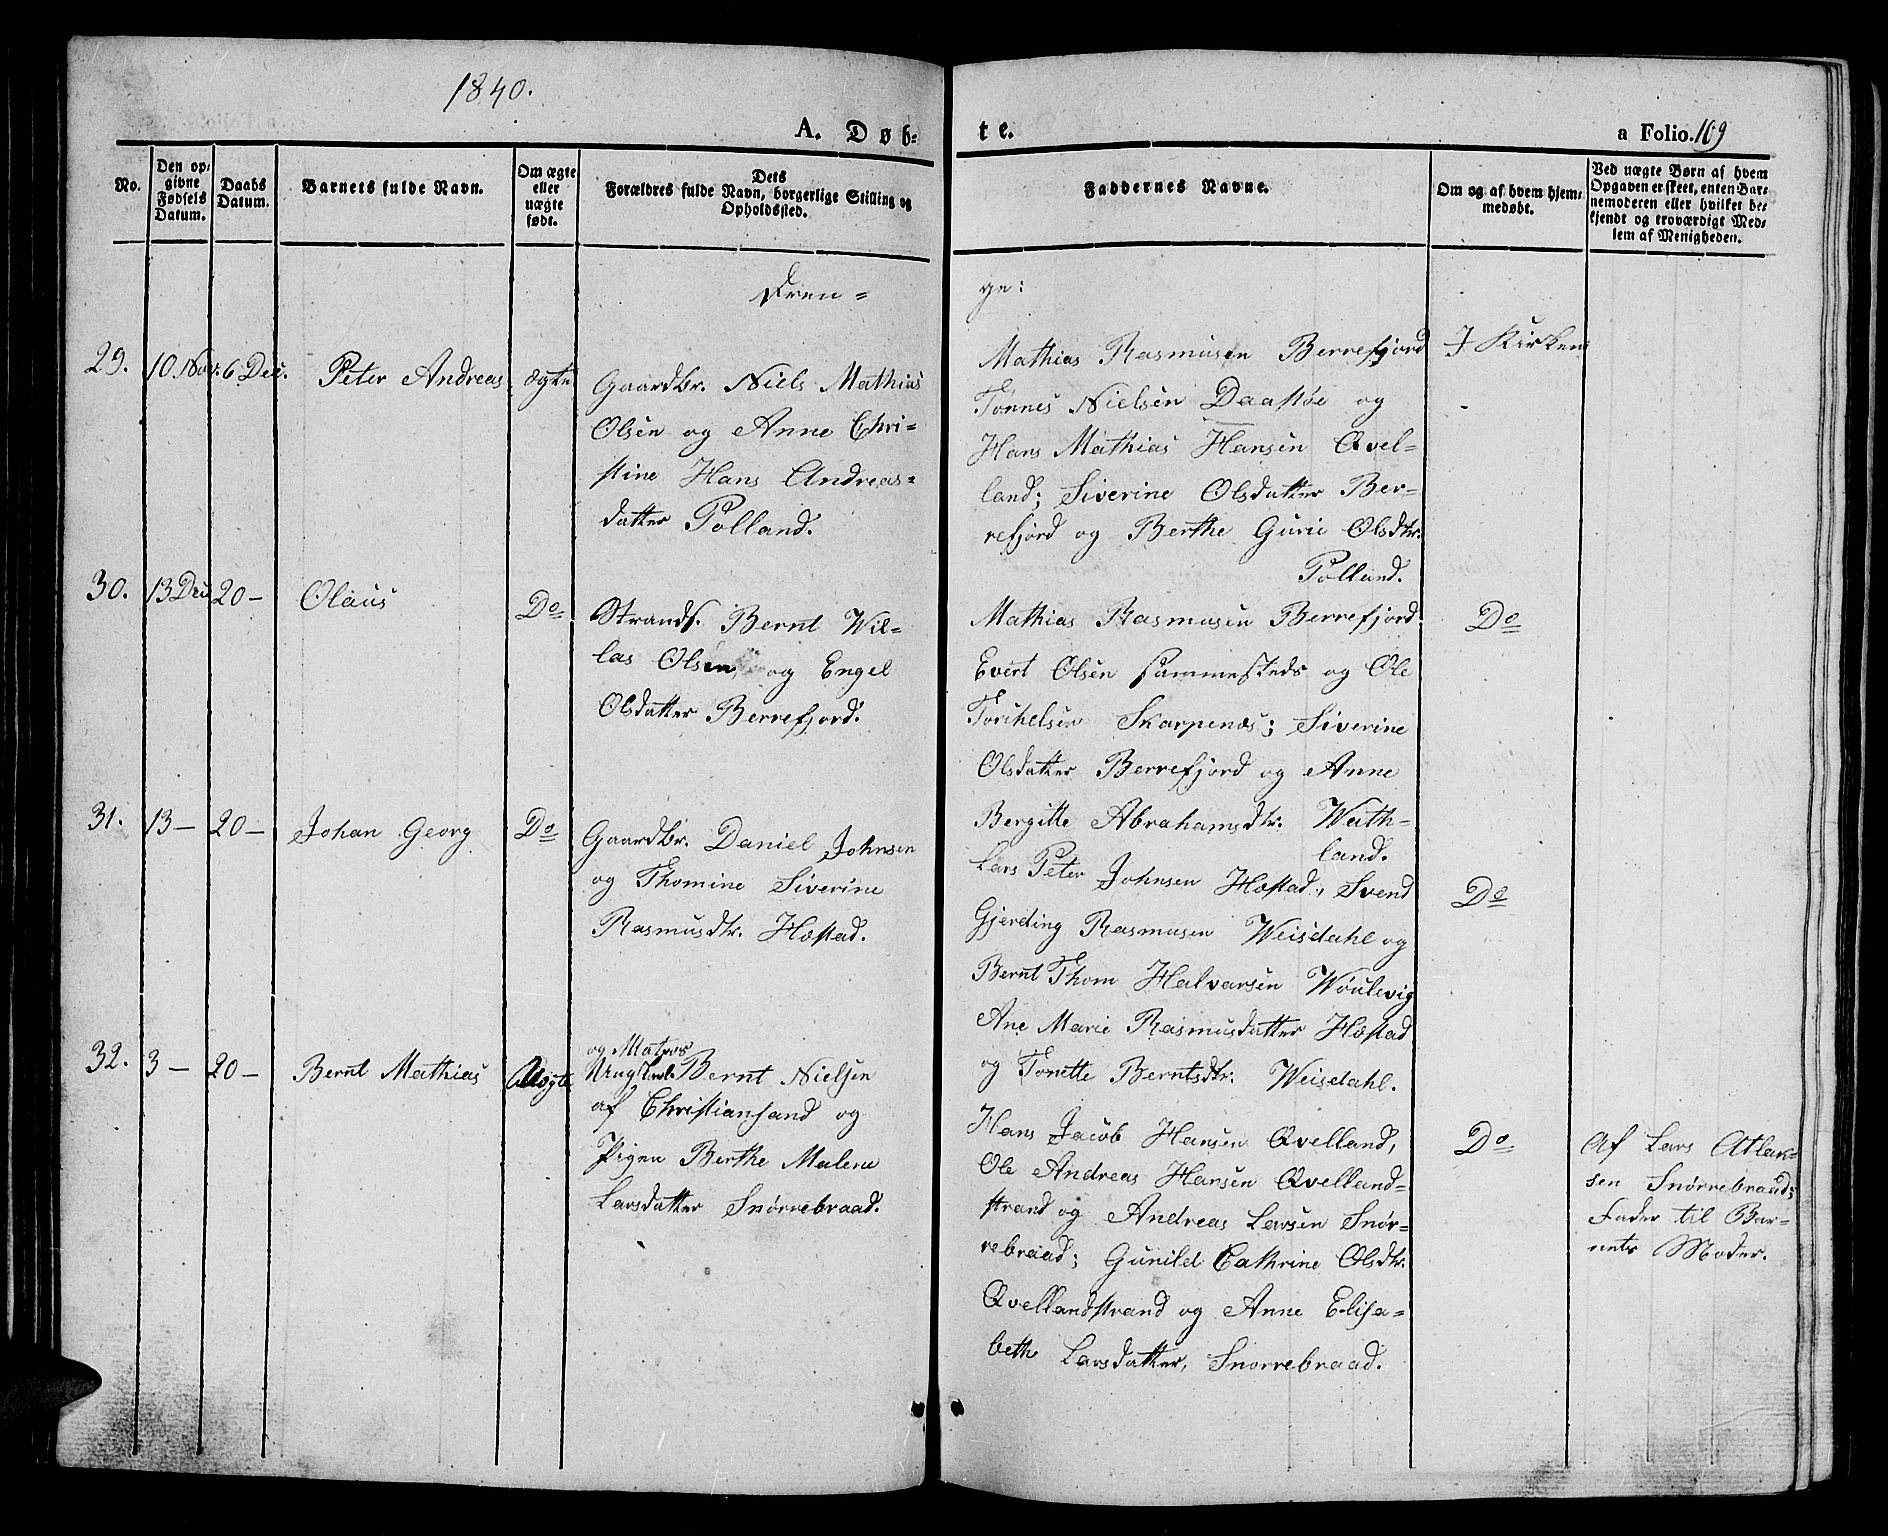 1840.
A. Døb-
te.
a Folio. 169
No.
Den op-
givne
Fødsels
Datum.
Daabs
Datum.
Barnets fulde Navn.
Om ægte
eller
uægte
født.
Dets
Forældres fulde Navn, borgerlige Stilling og
Opholdssted.
Faddernes Navne.
Om og af hvem hjem-
medøbt.
Ved uægte Børn af hvem
Opgaven er skeet, enten Bar-
nemoderen eller hvilket be-
kjendt og troværdigt Med-
lem af Menigheden.
Dren=
ge:
29. 10 Nov. 6 Dec. Peter Andreas ægte
Gaardbr. Niels Mathias
Olsen og Anne Chri=
stine Hans Andreas=
datter Polland.
Mathias Rasmusen Berrefjord
Tønnes Nielsen Daasløe og
Hans Mathias Hansen Qvel=
land; Siverine Olsdatter Ber=
refjord og Berthe Gurie Olsdtr.
Polland.
I Kirken
30. 13 Dec 20 — Olaus Do
Strands. Bernt Wil=
las Olsen og Engel
Olsdatter Berrefjord.
Mathias Rasmusen Berrefjord
Evert Olsen sammesteds og Ole
Torkelsen Skarpenæs; Siverine
Olsdatter Berrefjord og Anne
Bergitte Abrahamsdtr. Weth=
land.
Do
31. 13 — 20 — Johan Georg Do
Gaardbr. Daniel Johnsen
og Thomine Siverine
Rasmusdtr. Høstad.
Lars Peter Johnsen Høstad, Svend
Gjerding Rasmusen Weisdahl og
Bernt Thom Halvarsen Woulsvig
Ane Marie Rasmusdatter Høstad
og Tonette Berntsdtr. Weisdahl.
Do
32. 3 — 20 — Bernt Mathias Uægte
og Matros
Ungkarl Bernt Nielsen
af Christiansand og
Pigen Berthe Malene
Larsdatter Snørrebraad.
Hans Jacob Hansen Qvelland,
Ole Andreas Hansen Qvelland=
strand og Andreas Larsen Snør=
rebraad; Gunild Cathrine Olsdtr.
Qvellandstrand og Anne Elisa=
beth Larsdatter, Snorrebraad.
Do
Af Lars Atlak=
sen Snørrebraad;
Fader til Bar=
nets Moder.